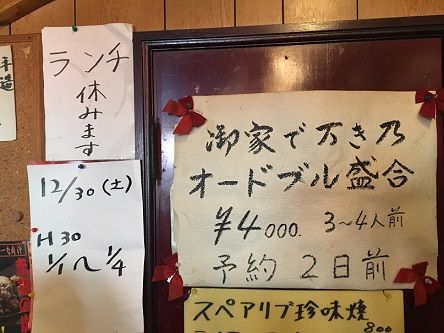 ランチ
休みます
12/30(土)
H30
1/1〜1/4
御家で万き乃
オードブル盛合
¥4000. 3〜4人前
予約 2日前
スペアリブ珍味焼
800